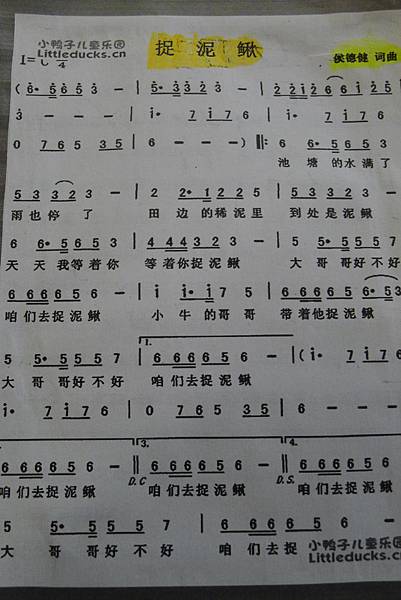 小鸭子儿童乐园
Littleducks.cn
捉 泥 鳅
1=C 4
侯德健 词曲
( 6· 5 6 5 3 | 5· 3 2 3 - | 2 1 2 1 2 6 6 1 2 5
3 - - - | i· 7 i 7 6 | i· 7 i 7 6
0 7 6 5 3 5 | 6 - - - ) ‖: 6 6· 5 6 5 3
池 塘 的水满了
5 3 3 2 3 - | 2 2· 1 2 2 5 | 5 3 2 3 3 -
雨也停 了 田 边 的稀泥里 到处是泥鳅
6 6· 5 6 5 3 | 4 4 4 3 2 3 - | 5 5· 5 5 5 7
天 天 我等着你 等着你捉泥鳅 大 哥 哥好不好
6 6 6 6 5 6 - | i i· i 7 5 | 6 6 6 6 5 6· 5 3
咱们去捉泥鳅 小 牛 的哥哥 带着他捉泥鳅
1.
5 5· 5 5 5 7 | 6 6 6 6 5 6 - | ( i· 7 i 7 6
大 哥 哥好不好 咱们去捉泥鳅
i· 7 i 7 6 | 0 7 6 5 3 5 | 6 - - - )
3. 4.
6 6 6 6 5 6 - ‖ 6 6 6 6 5 6 - ‖ 6 6 6 6 5 6
D.C D.S.
咱们去捉泥鳅 咱们去捉泥鳅 咱们去捉泥鳅
5 5· 5 5 5 7 | 6 6 6 6 5 6 -
大 哥 哥好不好 咱 们去捉
小鸭子儿童乐园
Littleducks.cn